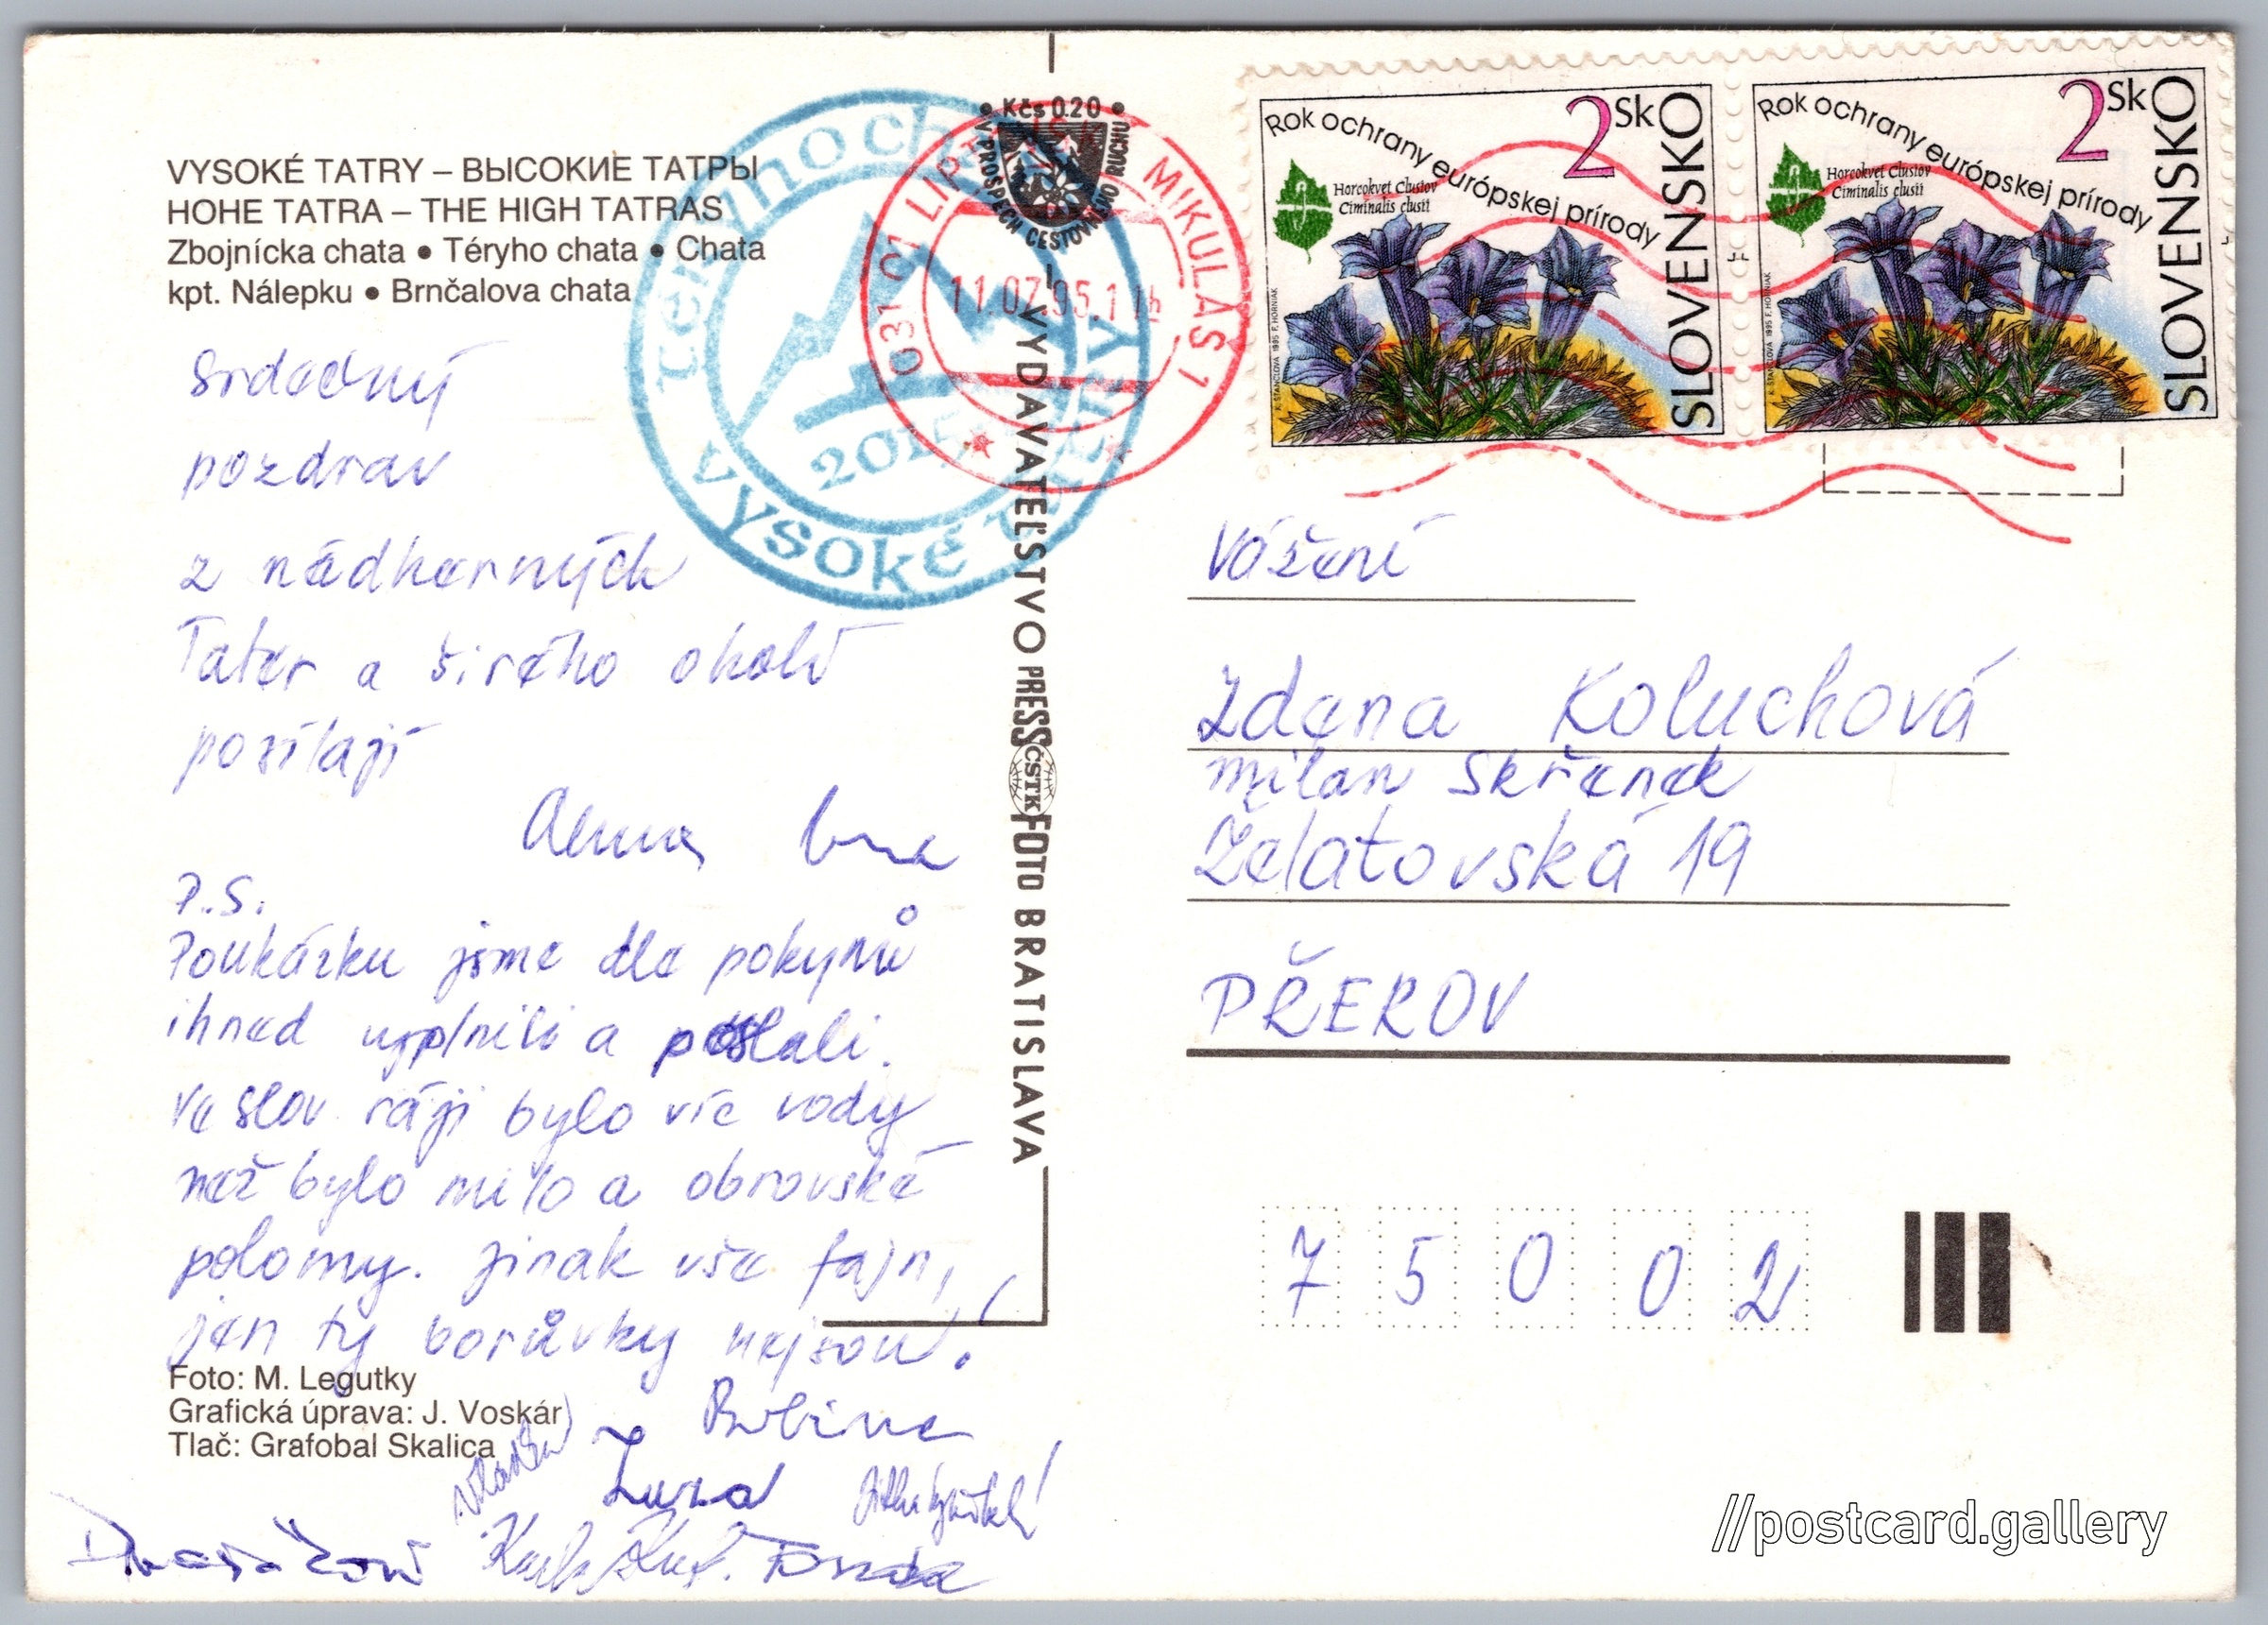 VYSOKÉ TATRY – ВЫСОКИЕ ТАТРЫ
HOHE TATRA – THE HIGH TATRAS
Zbojnícka chata • Téryho chata • Chata
kpt. Nálepku • Brnčalova chata
Srdečný
pozdrav
z nádherných
Tater a širého okolí
posílají
P.S.
Poukázku jsme dle pokynů
ihned vyplnili a poslali.
Ve slov. ráji bylo víc vody
než bylo milo a obrovské
polomy. Jinak vše fajn,
jen ty borůvky nejsou!
Foto: M. Legutky
Grafická úprava: J. Voskár
Tlač: Grafobal Skalica
téryho chata
vysoké tatry
2015
• Kčs 0.20 •
V PROSPECH CESTOVNÉHO RUCHU
031 01 LIPTOVSKÝ MIKULÁŠ 1
11.07.95
VYDAVATEĽSTVO PRESSFOTO BRATISLAVA
ČSTK
Rok ochrany európskej prírody
2 Sk
SLOVENSKO
Horcokvet Clusiov
Ciminalis clusii
K. ŠTANCLOVÁ 1995 F. HORNIAK
Rok ochrany európskej prírody
2 Sk
SLOVENSKO
Horcokvet Clusiov
Ciminalis clusii
K. ŠTANCLOVÁ 1995 F. HORNIAK
Vážení
Zdena Koluchová
Milan Skřenek
Želatovská 19
PŘEROV
7 5 0 0 2
//postcard.gallery